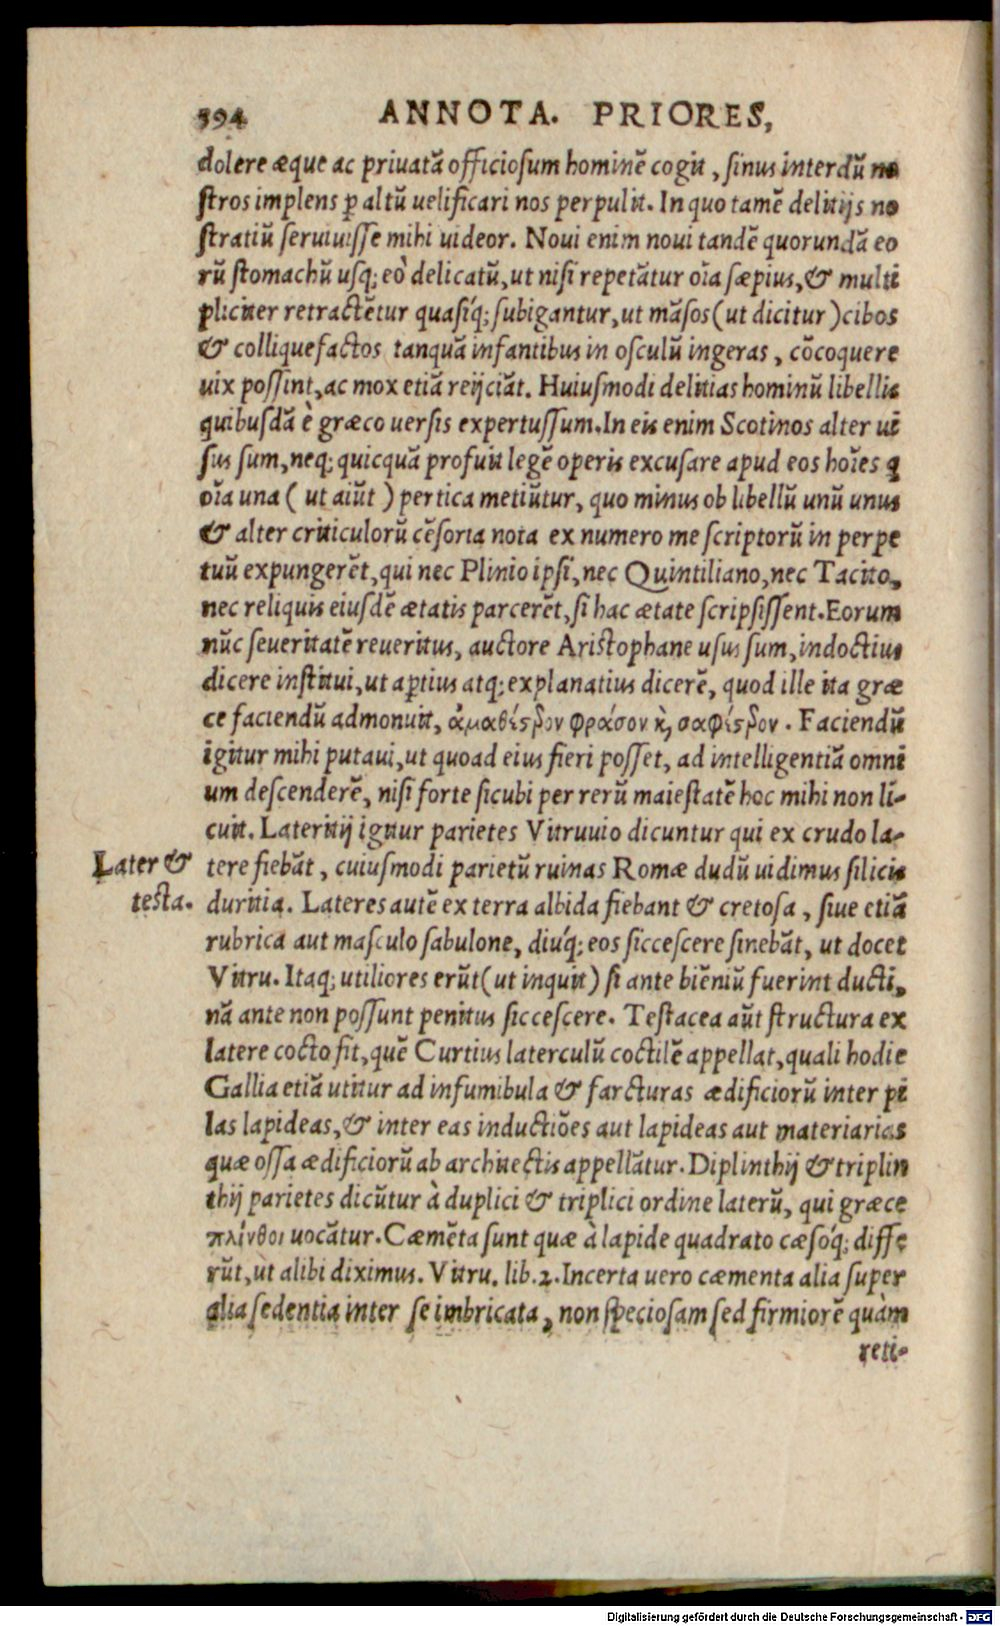 394 ANNOTA. PRIORES,
dolere æque ac priuatā officiosum hominē cogit, sinus interdū no
stros implens ꝑ altū uelificari nos perpulit. In quo tamē delitijs no
stratiū seruiuisse mihi uideor. Noui enim noui tandē quorundā eo
rū stomachū usq; eò delicatū, ut nisi repetātur oīa sæpius, & multi
pliciter retractētur quasíq; subigantur, ut māsos (ut dicitur) cibos
& colliquefactos tanquā infantibus in osculū ingeras, cōcoquere
uix possint, ac mox etiā reijciāt. Huiusmodi delitias hominū libellis
quibusdā è græco uersis expertus sum. In eis enim Scotinos alter ui
sus sum, neq; quicquā profuit legē operis excusare apud eos hoīes q
oīa una (ut aiūt) pertica metiūtur, quo minus ob libellū unū unus
& alter criticulorū cēsoria nota ex numero me scriptorū in perpe
tuū expungerēt, qui nec Plinio ipsi, nec Quintiliano, nec Tacito,
nec reliquis eiusdē ætatis parcerēt, si hac ætate scripsissent. Eorum
nūc seueritatē reueritus, auctore Aristophane usus sum, indoctius
dicere institui, ut aꝑtius atq; explanatius dicerē, quod ille ita græ
ce faciendū admonuit, ἀμαθέςερον φράσον κ̀ σαφέςερον. Faciendū
igitur mihi putaui, ut quoad eius fieri posset, ad intelligentiā omni
um descenderē, nisi forte sicubi per rerū maiestatē hoc mihi non li-
cuit. Lateritij igitur parietes Vitruuio dicuntur qui ex crudo la-
Later & tere fiebāt, cuiusmodi parietū ruinas Romæ dudū uidimus silicis
testa. duritia. Lateres autē ex terra albida fiebant & cretosa, siue etiā
rubrica aut masculo sabulone, diúq; eos siccescere sinebāt, ut docet
Vitru. Itaq; utiliores erūt (ut inquit) si ante biēniū fuerint ducti,
nā ante non possunt penitus siccescere. Testacea aūt structura ex
latere cocto fit, quē Curtius laterculū coctilē appellat, quali hodie
Gallia etiā utitur ad infumibula & farcturas ædificiorū inter pi
las lapideas, & inter eas inductiōes aut lapideas aut materiarias
quæ ossa ædificiorū ab architectis appellātur. Diplinthij & triplin
thij parietes dicūtur à duplici & triplici ordine laterū, qui græce
πλίνθοι uocātur. Cæmēta sunt quæ à lapide quadrato cæsóq; diffe
rūt, ut alibi diximus. Vitru. lib. 2. Incerta uero cæmenta alia super
alia sedentia inter se imbricata, non speciosam sed firmiorē quàm
reti-
Digitalisierung gefördert durch die Deutsche Forschungsgemeinschaft - DFG